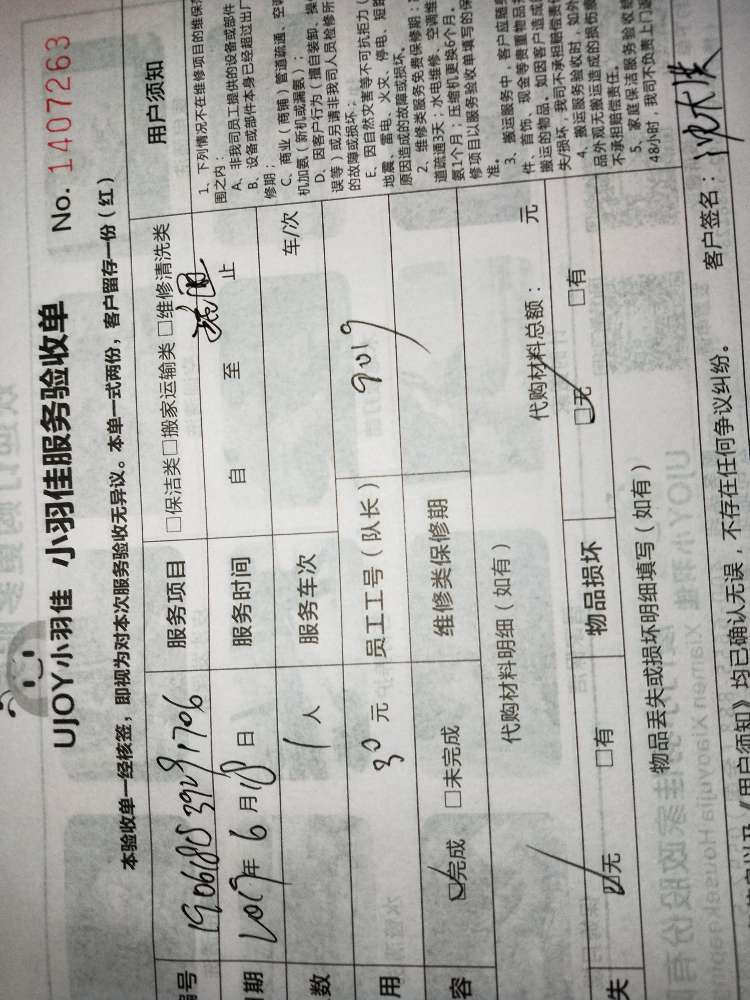 UJOY小羽佳 小羽佳服务验收单
No. 1407263
本验收单一经核签，即视为对本次服务验收无异议。本单一式两份，客户留存一份（红）
编号
服务项目 □保洁类□搬家运输类 □维修清洗类
日期 2019年6月18日
服务时间 自 至 止
数 1人
服务车次 车/次
用 30元
员工工号（队长） 9019
容 ☑完成 □未完成
维修类保修期
代购材料明细（如有） 代购材料总额： 元
失 ☑无 □有
物品损坏 ☑无 □有
物品丢失或损坏明细填写（如有）
《用户须知》均已确认无误，不存在任何争议纠纷。 客户签名：
用户须知
1、下列情况不在维修项目的维保
围之内：
A、非我司员工提供的设备或部件
B、设备或部件本身已经超过出厂
修期；
C、商业（商铺）管道疏通、空调
机加氨（新机或漏氨）；
D、因客户行为（擅自装卸、操
误等）或另请非我司人员检修所
的故障或损坏；
E、因自然灾害等不可抗拒力（
地震、雷电、火灾、停电、短路
原因造成的故障或损坏。
2、维修类服务免费保修期：
道疏通3天；水电维修、空调维
氨1个月，压缩机更换6个月。
修项目以服务验收单填写的保
准。
3、搬运服务中，客户应随身
件、首饰、现金等贵重物品
搬运的物品，如因客户造成
失/损坏，我司不承担赔偿责
4、搬运服务验收时，如外
品外观无搬运造成的损伤痕
不承担赔偿责任。
5、家庭保洁服务验收
48小时，我司不负责上门返